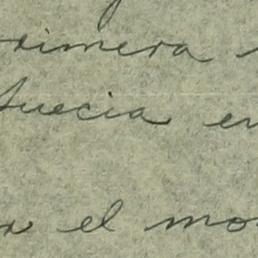 primera
Suecia en
el mo